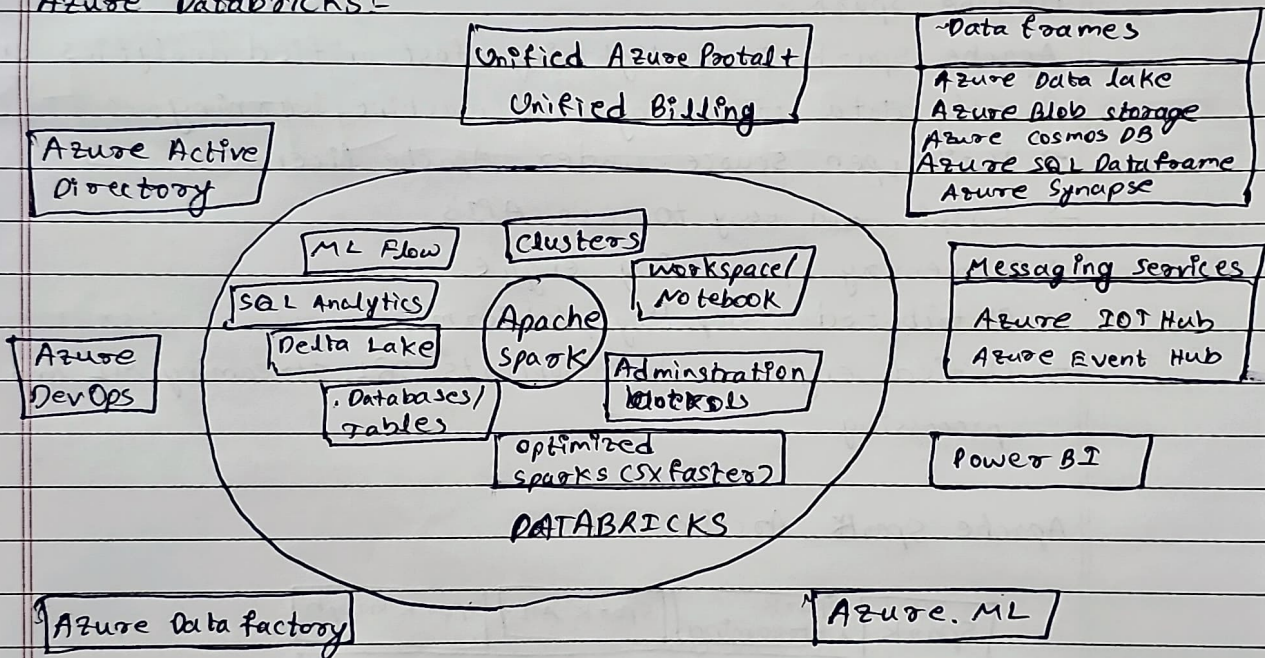 Azure Databricks-
Unified Azure Protal +
Unified Billing
Data frames
Azure Data lake
Azure Blob storage
Azure Cosmos DB
Azure SQL Dataframe
Azure Synapse
Azure Active
Directory
ML Flow
Clusters
Workspace/
Notebook
SQL Analytics
Apache
Spark
Delta Lake
Adminstration
Databases/
Tables
Optimized
Sparks (5x faster)
DATABRICKS
Messaging Services
Azure IOT Hub
Azure Event Hub
Azure
DevOps
Power BI
Azure Data factory
Azure. ML